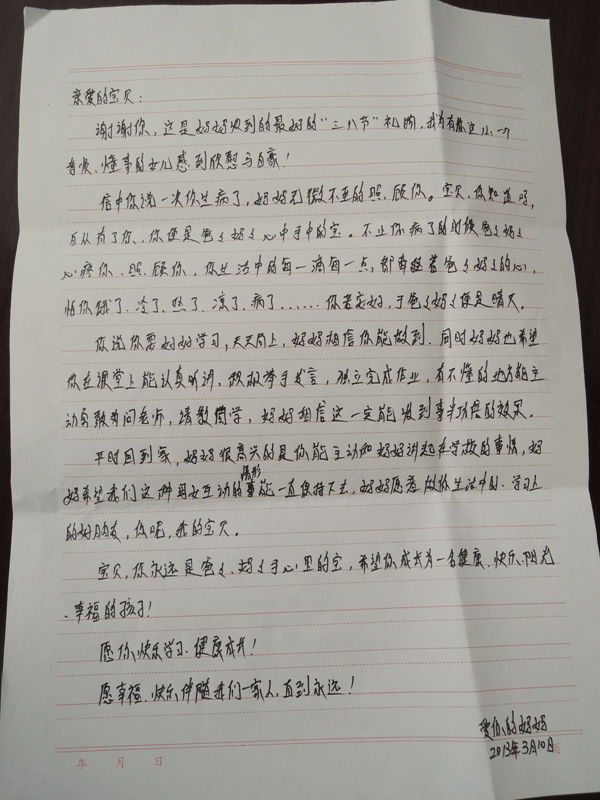 亲爱的宝贝：
谢谢你，这是妈妈收到的最好的“三八节”礼物，我为有你这么一个
孝顺、懂事的女儿感到欣慰与自豪！
信中你说一次你生病了，妈妈无微不至的照顾你。宝贝，你知道吗，
自从有了你，你便是爸爸妈妈心中手中的宝。不止你病了的时候爸爸妈妈
心疼你、照顾你，你生活中的每一滴每一点，都牵挂着爸爸妈妈的心，
怕你饿了、冷了、热了、凉了、病了……你若安好，于爸爸妈妈便是晴天。
你说你要好好学习，天天向上，妈妈相信你能做到，同时妈妈也希望
你在课堂上能认真听讲、积极举手发言，独立完成作业，有不懂的地方能主
动勇敢的问老师，请教同学，妈妈相信这一定能收到事半功倍的效果。
平时回到家，妈妈很高兴的是你能主动和妈妈讲起在学校的事情，妈
妈希望我们这种母女互动的情形能一直保持下去，妈妈愿意做你生活中的、学习上
的好朋友，你呢，我的宝贝。
宝贝，你永远是爸爸、妈妈手心里的宝，希望你成长为一名健康、快乐、阳光
、幸福的孩子！
愿你快乐学习、健康成长！
愿幸福、快乐伴随我们一家人，直到永远！
爱你的妈妈
2013年3月10日
年 月 日